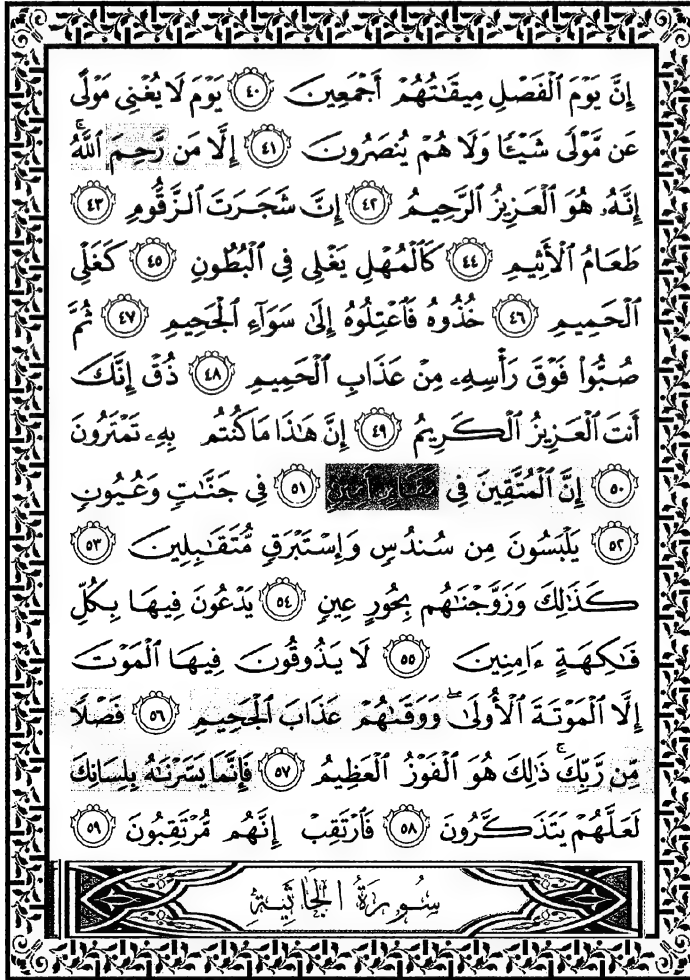 إِنَّ يَوْمَ ٱلْفَصْلِ مِيقَٰتُهُمْ أَجْمَعِينَ ٤٠ يَوْمَ لَا يُغْنِى مَوْلًى
عَن مَّوْلًى شَيْـًٔا وَلَا هُمْ يُنصَرُونَ ٤١ إِلَّا مَن رَّحِمَ ٱللَّهُۚ
إِنَّهُۥ هُوَ ٱلْعَزِيزُ ٱلرَّحِيمُ ٤٢ إِنَّ شَجَرَتَ ٱلزَّقُّومِ ٤٣
طَعَامُ ٱلْأَثِيمِ ٤٤ كَٱلْمُهْلِ يَغْلِى فِى ٱلْبُطُونِ ٤٥ كَغَلْىِ
ٱلْحَمِيمِ ٤٦ خُذُوهُ فَٱعْتِلُوهُ إِلَىٰ سَوَآءِ ٱلْجَحِيمِ ٤٧ ثُمَّ
صُبُّوا۟ فَوْقَ رَأْسِهِۦ مِنْ عَذَابِ ٱلْحَمِيمِ ٤٨ ذُقْ إِنَّكَ
أَنتَ ٱلْعَزِيزُ ٱلْكَرِيمُ ٤٩ إِنَّ هَٰذَا مَا كُنتُم بِهِۦ تَمْتَرُونَ
٥٠ إِنَّ ٱلْمُتَّقِينَ فِى مَقَامٍ أَمِينٍ ٥١ فِى جَنَّٰتٍ وَعُيُونٍ
٥٢ يَلْبَسُونَ مِن سُندُسٍ وَإِسْتَبْرَقٍ مُّتَقَٰبِلِينَ ٥٣
كَذَٰلِكَ وَزَوَّجْنَٰهُم بِحُورٍ عِينٍ ٥٤ يَدْعُونَ فِيهَا بِكُلِّ
فَٰكِهَةٍ ءَامِنِينَ ٥٥ لَا يَذُوقُونَ فِيهَا ٱلْمَوْتَ
إِلَّا ٱلْمَوْتَةَ ٱلْأُولَىٰۖ وَوَقَىٰهُمْ عَذَابَ ٱلْجَحِيمِ ٥٦ فَضْلًا
مِّن رَّبِّكَۚ ذَٰلِكَ هُوَ ٱلْفَوْزُ ٱلْعَظِيمُ ٥٧ فَإِنَّمَا يَسَّرْنَٰهُ بِلِسَانِكَ
لَعَلَّهُمْ يَتَذَكَّرُونَ ٥٨ فَٱرْتَقِبْ إِنَّهُم مُّرْتَقِبُونَ ٥٩
سُورَةُ الْجَاثِيَةِ